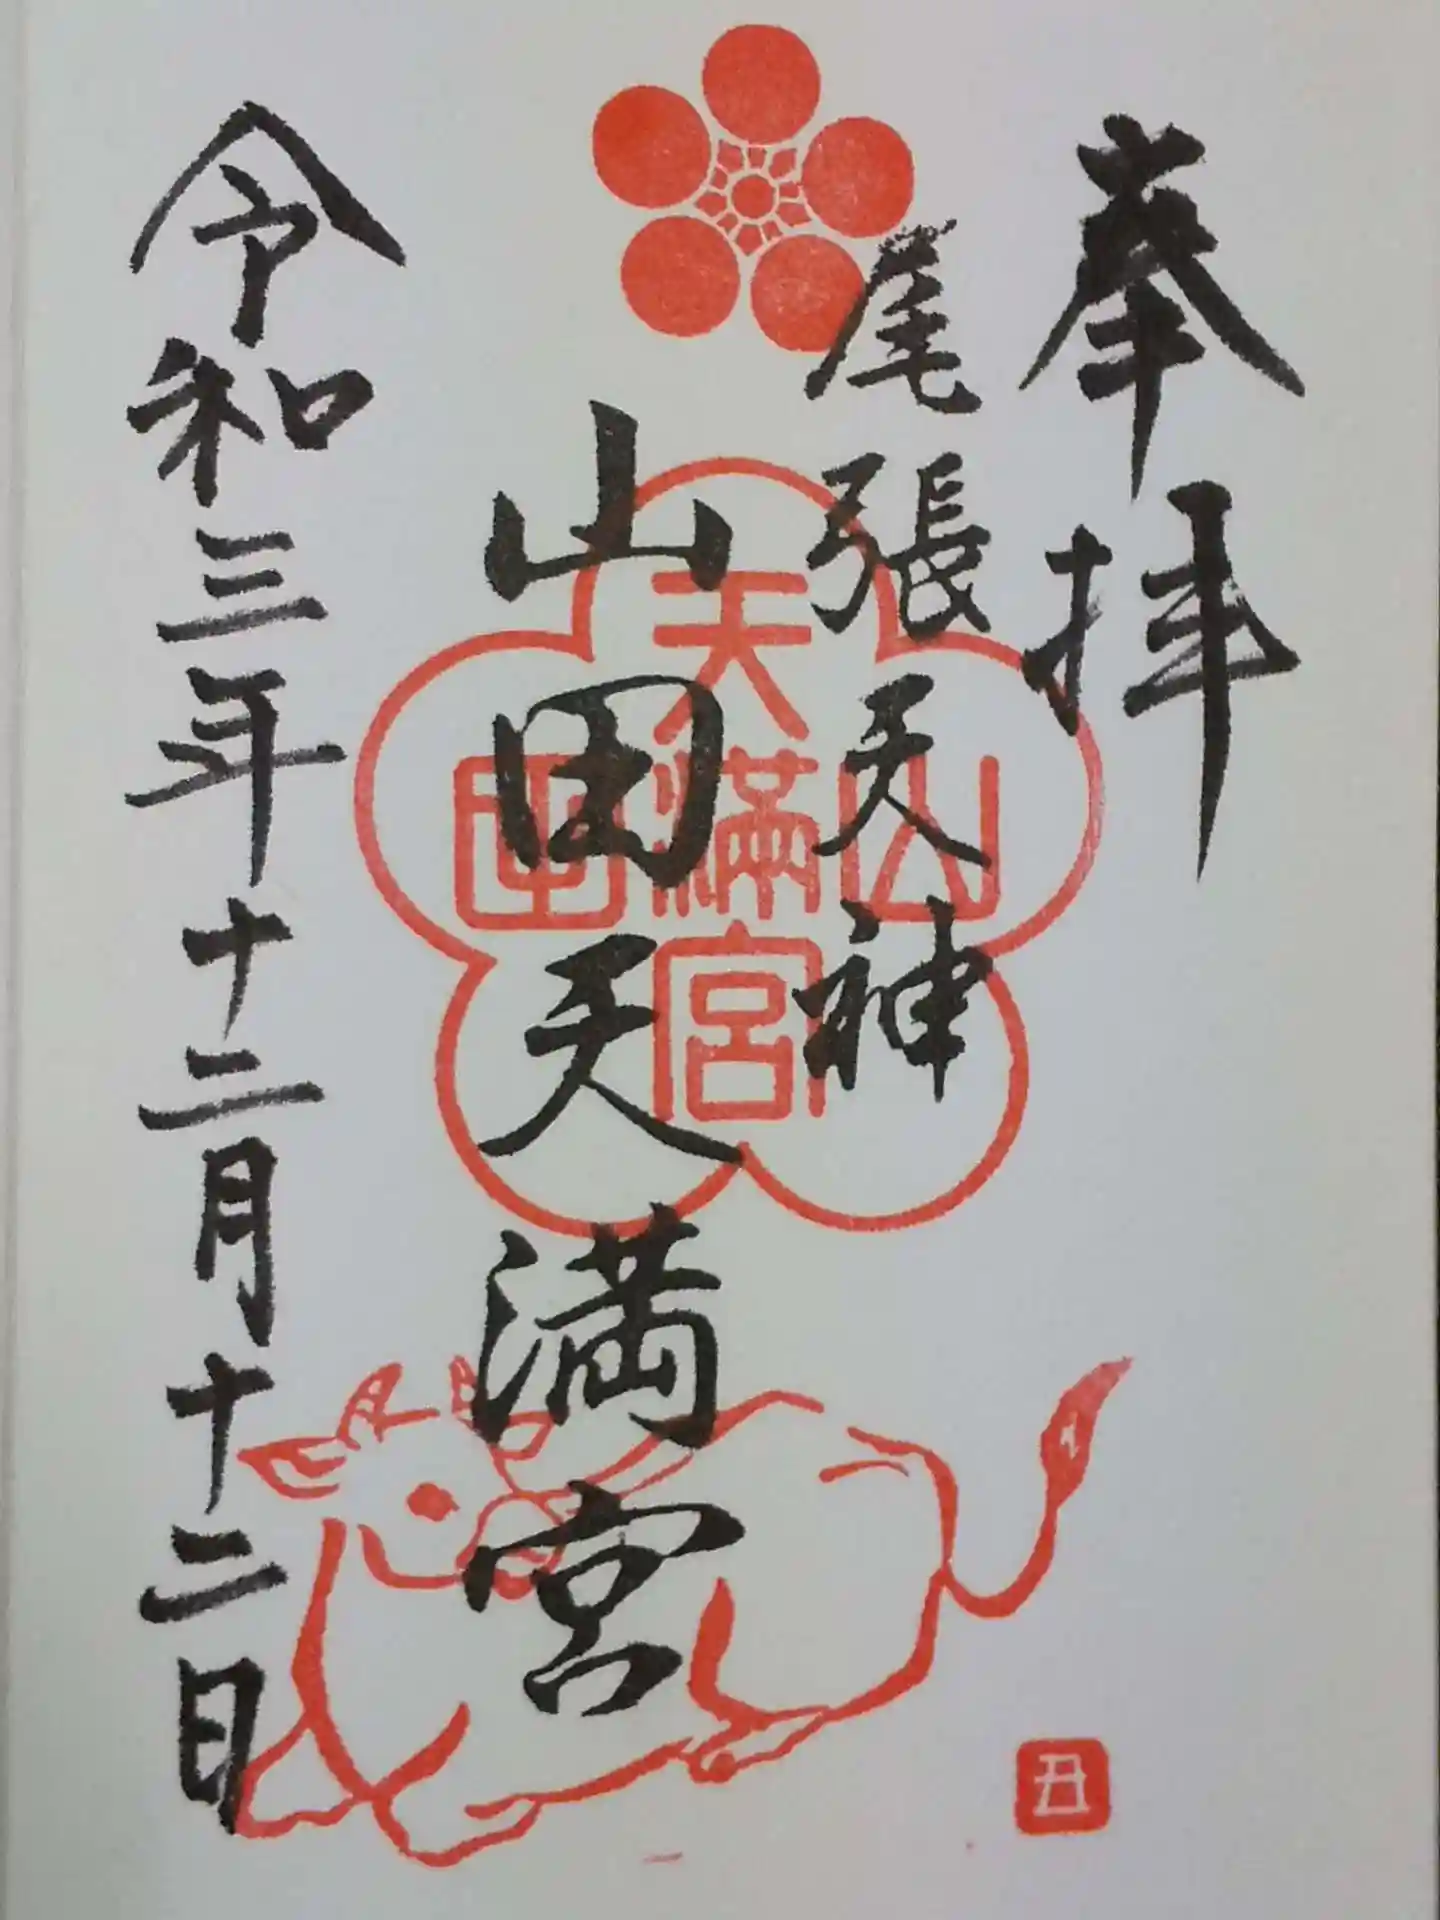 奉拝
尾張天神
山田天満宮
令和三年十二月十二日
山
天満宮
田
丑